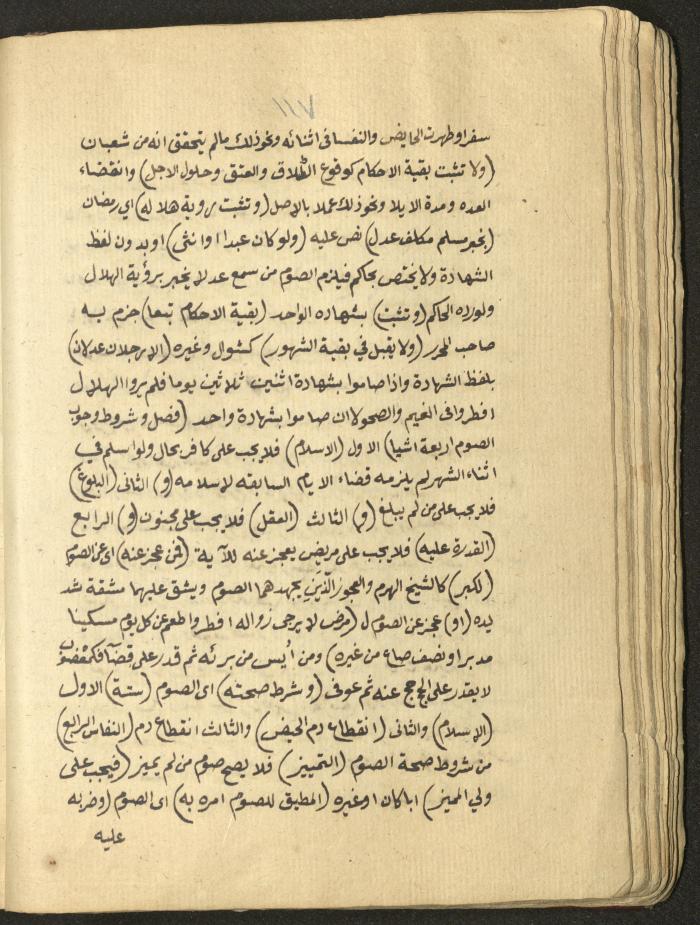 ١١٧
سفر اوطهرت الحايض والنفسا فى اثنائه ونحوذلك مالم يتحقق انه من شعبان
(ولا تثبت بقية الاحكام كوقوع الطلاق والعتق وحلول الاجل) وانقضاء
العده ومدة الايلا ونحوذلك عملا بالاصل (وتثبت بروية هلاله) اي رمضان
(بخبر مسلم مكلف عدل) نص عليه (ولو كان عبدا اوانثى) اوبدون لفظ
الشهادة ولا يختص بحاكم فيلزم الصوم من سمع عدلا يخبر برؤية الهلال
ولورده الحاكم (وتثبت) بشهاده الواحد (بقية الاحكام تبعا) جزم به
صاحب المحرر (ولا يقبل في بقية الشهور) كشوال وغيره (الارجلان عدلان)
بلفظ الشهادة واذا صاموا بشهادة اثنين ثلاثين يوما فلم يروا الهلال
افطروا فى الغيم والصحولا ان صاموا بشهادة واحد (فصل وشروط وجوب
الصوم اربعة اشيا) الاول (الاسلام) فلا يجب على كافر بحال ولواسلم في
اثناء الشهر لم يلزمه قضاء الايام السابقه لاسلامه (و) الثانى (البلوغ)
فلا يجب على من لم يبلغ (و) الثالث (العقل) فلا يجب على مجنون (و) الرابع
(القدرة عليه) فلا يجب على مريض يعجز عنه للآية (فمن عجز عنه) اى عن الصوم
(لكبر) كالشيخ الهرم والعجوز الّذَينِ يجهدهما الصوم ويشق عليهما مشقة شد
يده (او) عجز عن الصوم ل (مرض لا يرجى زواله افطر واطعم عن كل يوم مسكينا
مد بر او نصف صاع من غيره) ومن أيس من برئه ثم قدر على قضآ فكمعضوب
لا يقدر على الحج حج عنه ثم عوفى (وشرط صحته) اى الصوم (ستة) الاول
(الاسلام) والثانى (انقطاع دم الحيض) والثالث انقطاع دم (النفاس الرابع)
من شروط صحة الصوم (التمييز) فلا يصح صوم من لم يميز (فيجب على
ولي المميز) ابا كان اوغيره (المطيق للصوم امره به) اى الصوم (وضربه
عليه